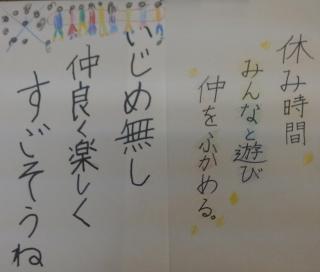 休み時間
みんなと遊び
仲をふかめる。
いじめ無し
仲良く楽しく
すごそうね